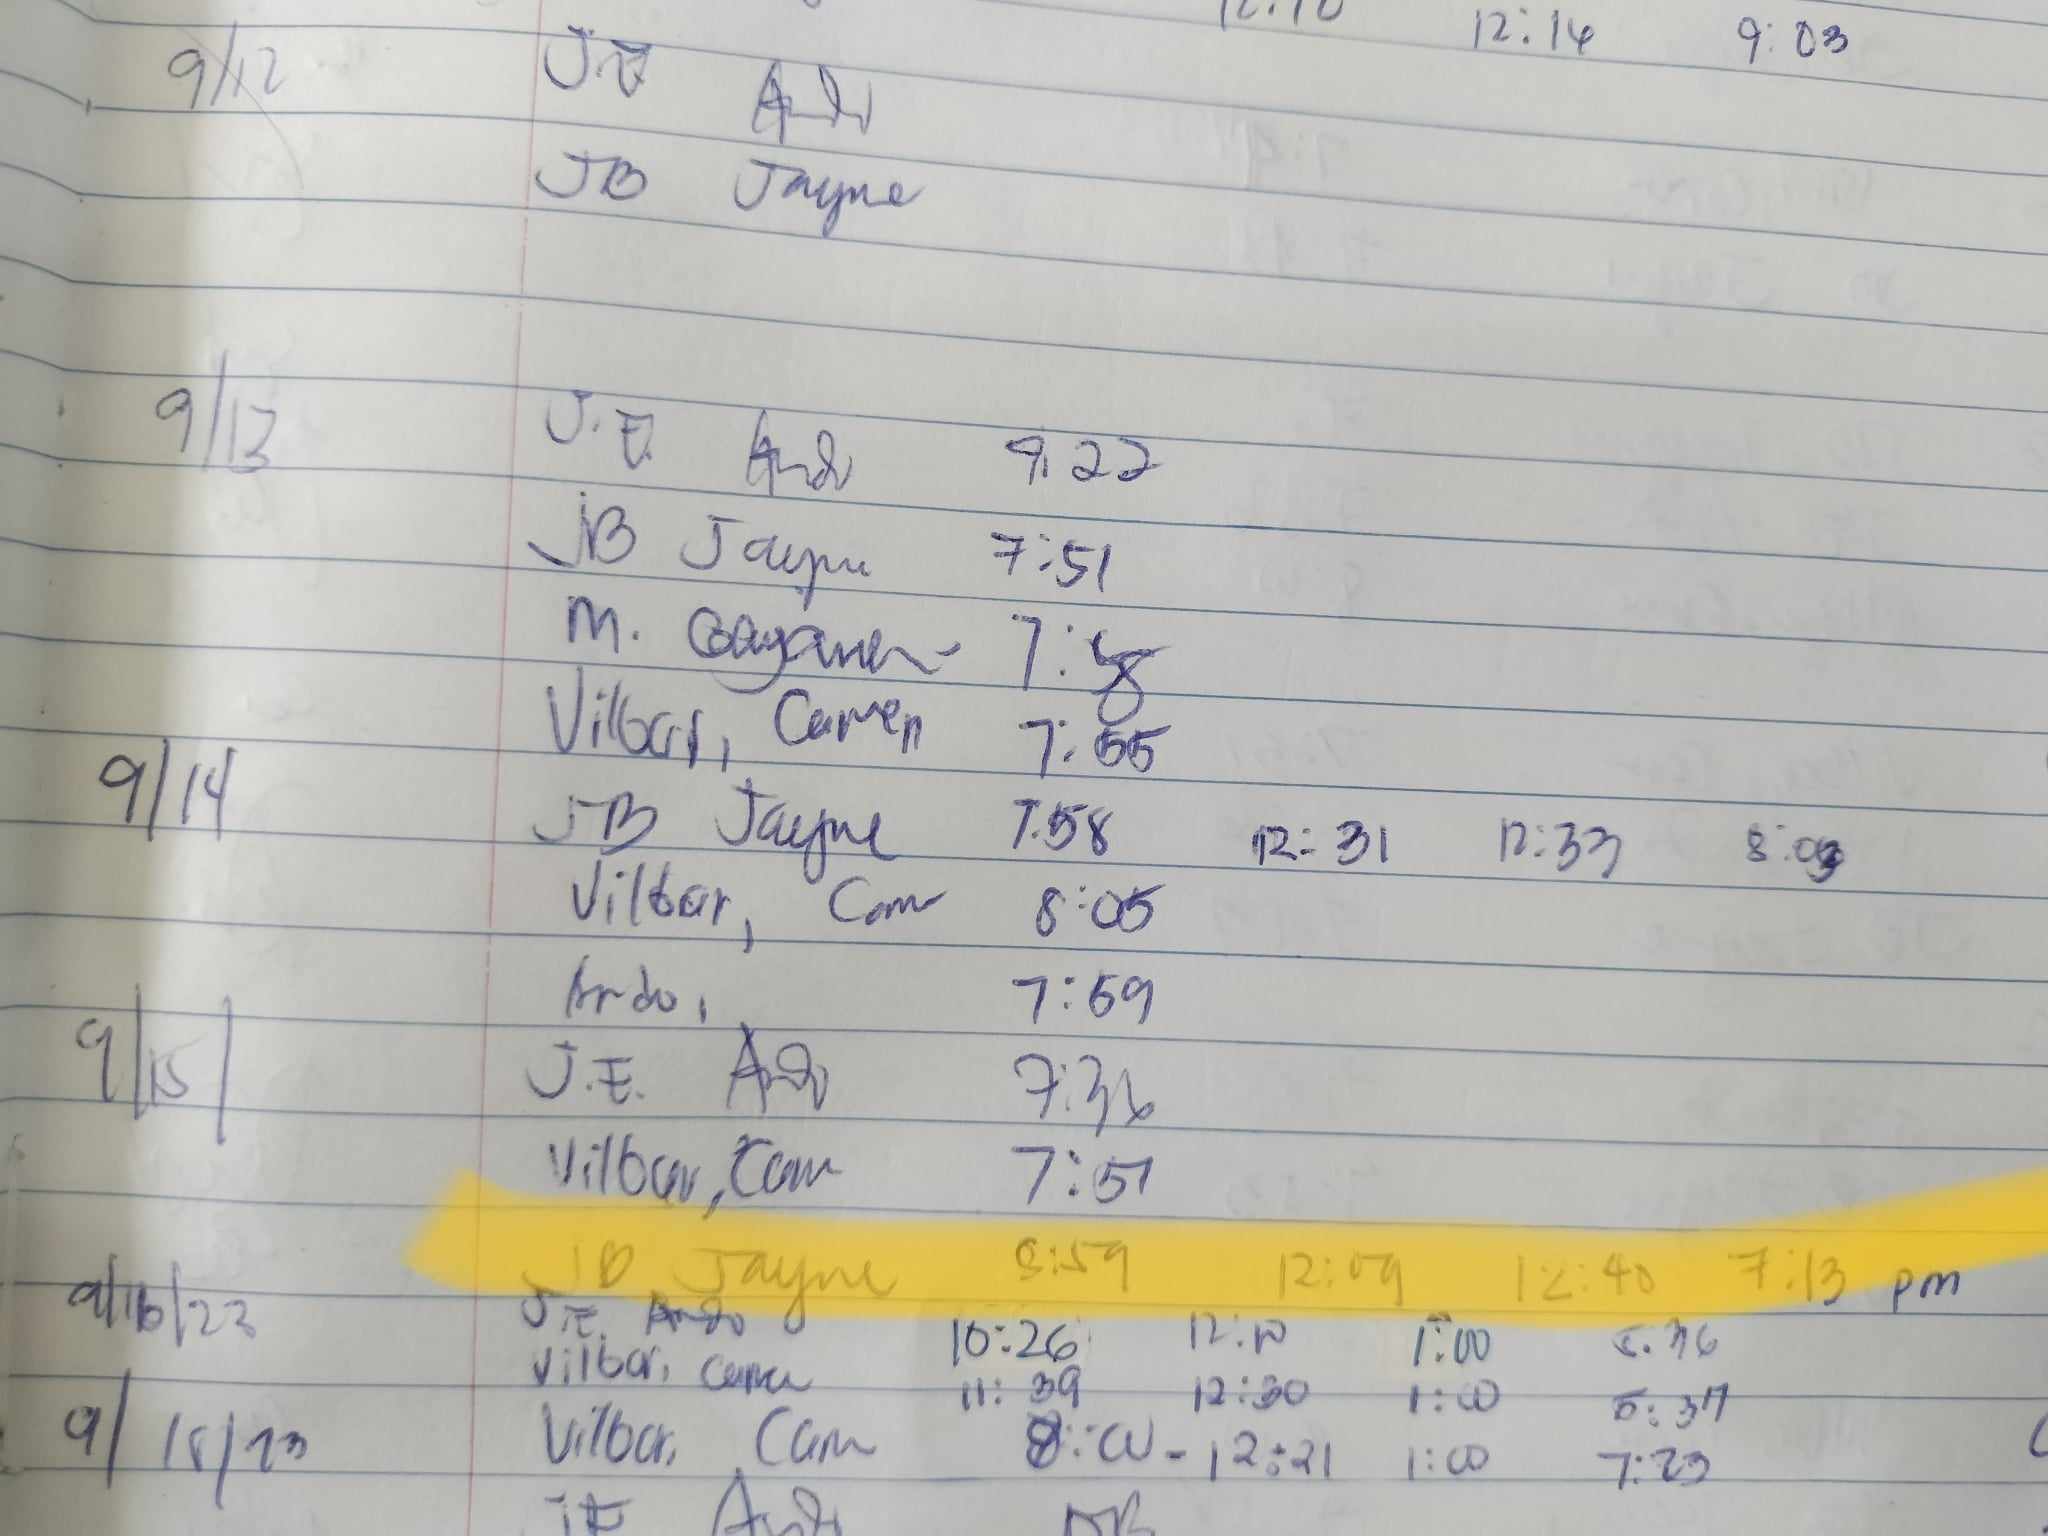 12:14 9:03
9/12 J.E Ando
JB Jayne
9/13 J.E. Ando 9:22
JB Jayne 7:51
M. 7:
Vilbar, Carmen 7:55
9/14 JB Jayne 7:58 12:31 12:33 8:03
Vilbar, Carm 8:05
Ando, 7:59
9/15 J.E. Ando 7:36
Vilbar, Carm 7:57
JB Jayne 8:59 12:09 12:40 7:13 pm
9/16/23 J.E. Ando 10:26 12:10 1:00 5:36
Vilbar, Carmen 11:39 12:30 1:00 5:37
9/18/23 Vilbar, Carm 8:00 - 12:21 1:00 7:23
JE Ando